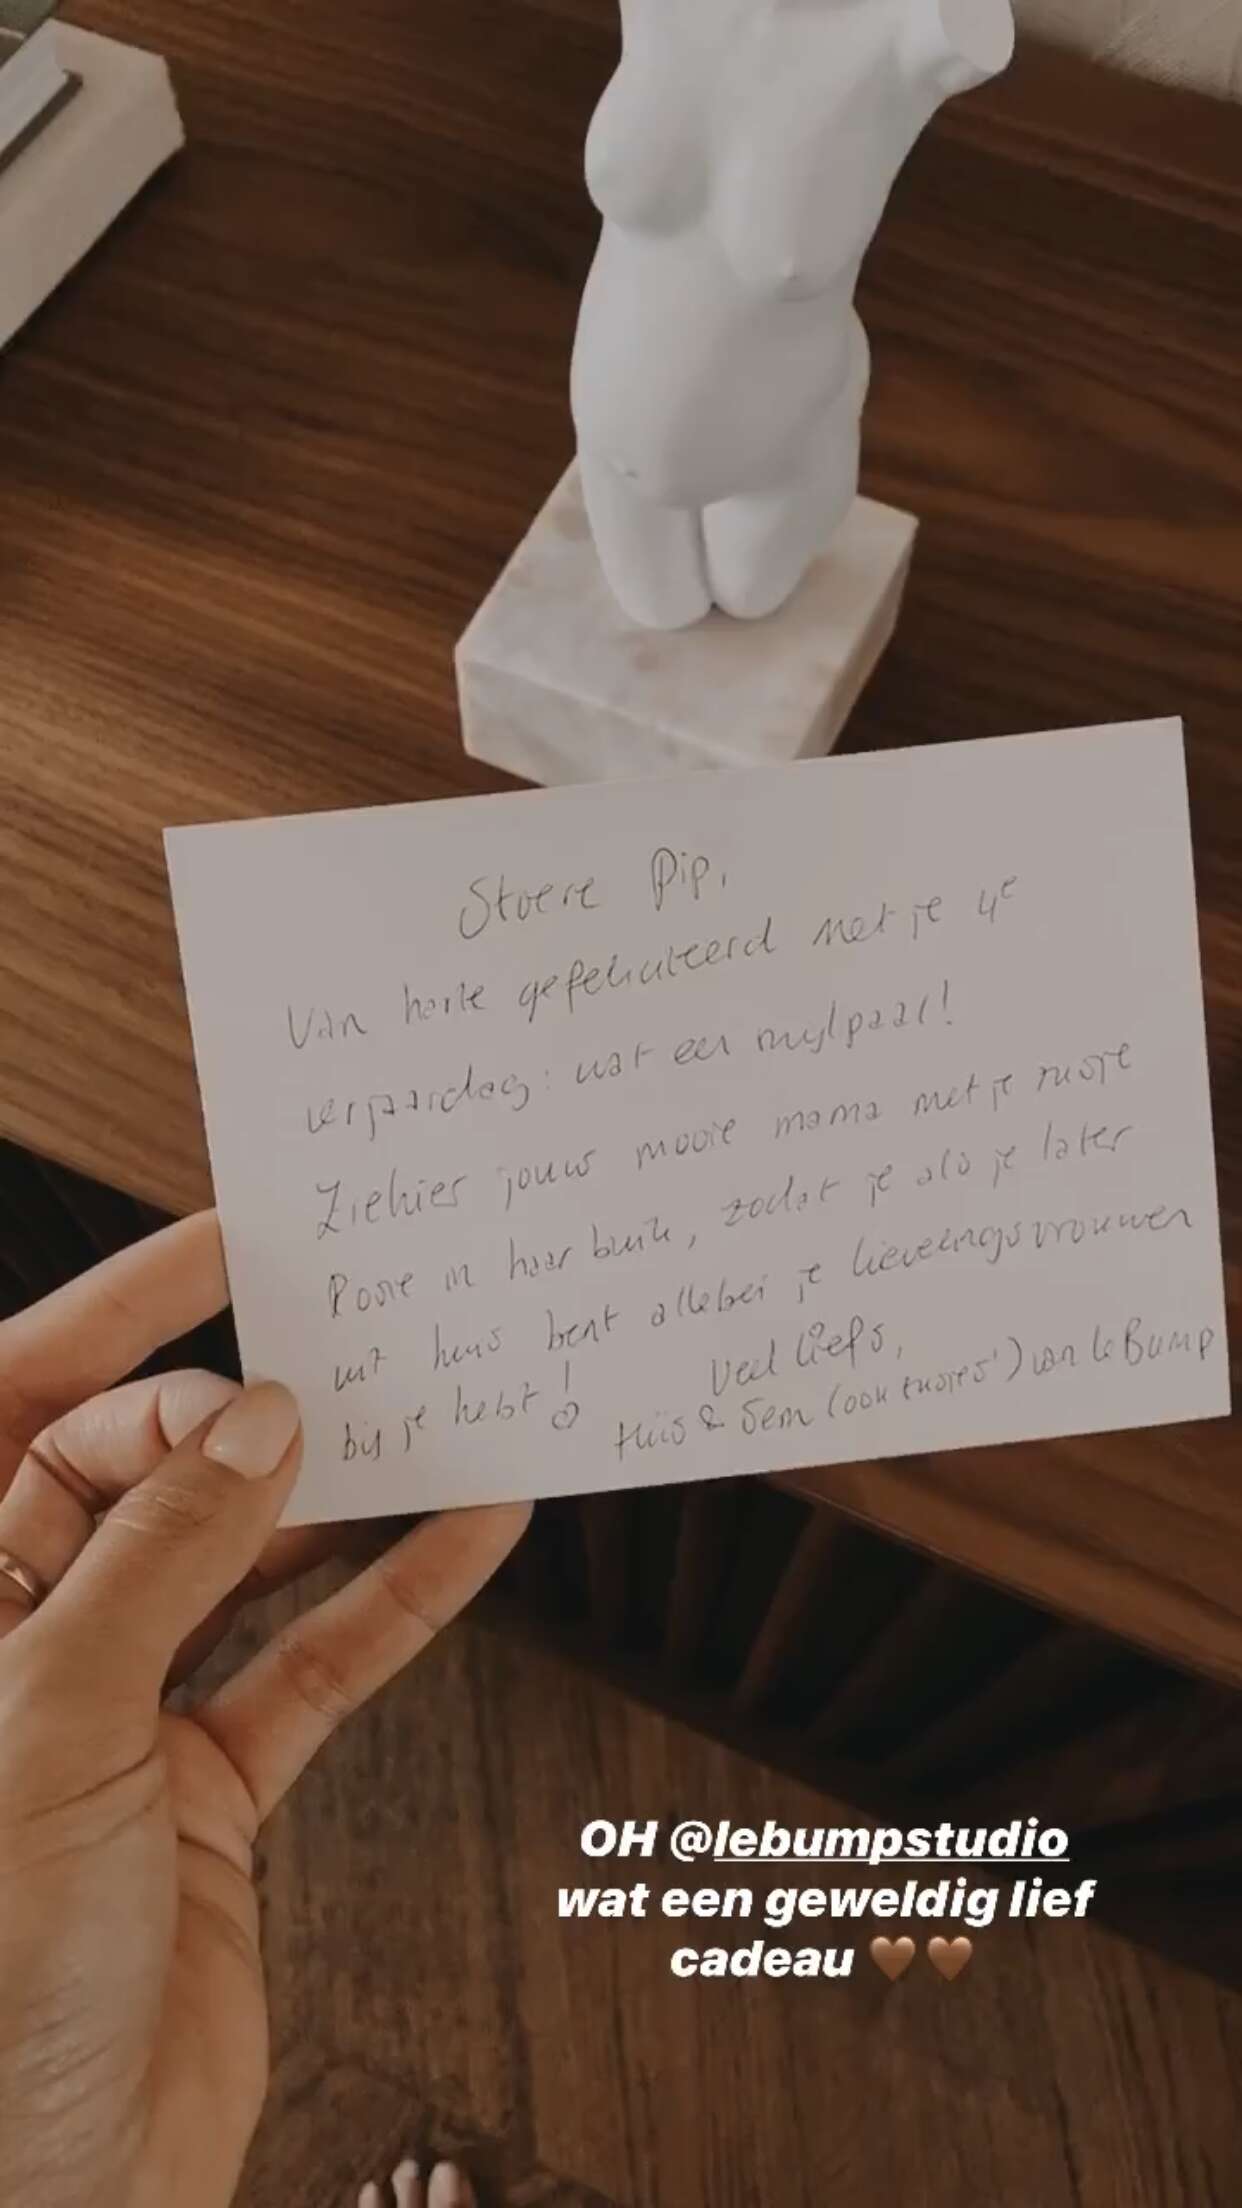 Stoere Pip,
Van harte gefeliciteerd met je 4e
verjaardag: wat een mijlpaal!
Ziehier jouw mooie mama met je zusje
Rosie in haar buik, zodat je als je later
uit huis bent allebei je lievelingsvrouwen
bij je hebt! ♡
Veel liefs,
& Sem (ook zusjes!) van LeBump
OH @lebumpstudio
wat een geweldig lief
cadeau 🤎🤎